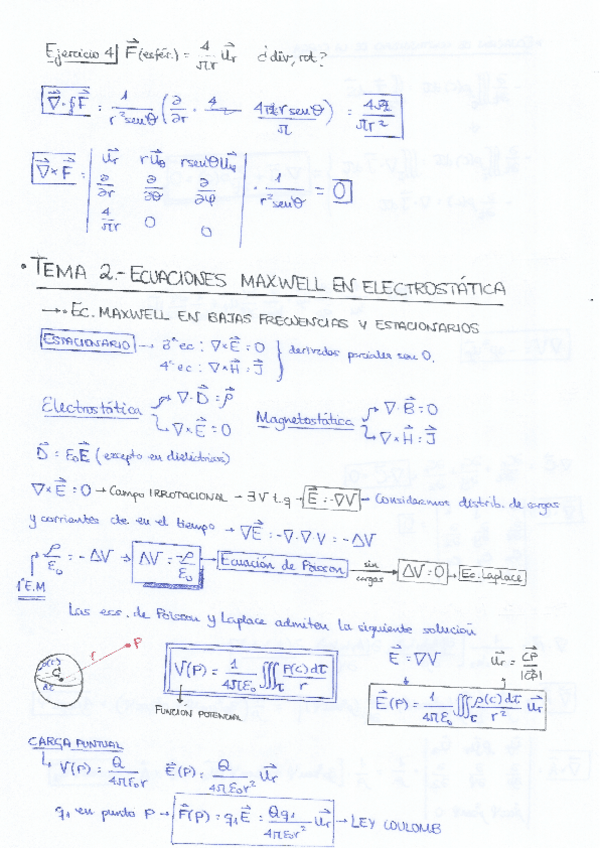 Ejercicio 4| F⃗(esfér.) = 4/πr u⃗r ¿div, rot?
∇⃗·F⃗ = 1/(r² senθ) (∂/∂r · 4 r senθ/π) = 4/(πr²)
∇⃗×F⃗ = | u⃗r  r u⃗θ  r senθ u⃗φ |
| ∂/∂r  ∂/∂θ  ∂/∂φ | · 1/(r² senθ) = 0
| 4/πr  0  0 |
· TEMA 2.- ECUACIONES MAXWELL EN ELECTROSTÁTICA
→· EC. MAXWELL EN BAJAS FRECUENCIAS Y ESTACIONARIOS
ESTACIONARIO → 3ª ec: ∇×E⃗ = 0 } derivadas parciales son 0.
4ª ec: ∇×H⃗ = J⃗
Electrostática → ∇·D⃗ = ρ Magnetostática → ∇·B⃗ = 0
→ ∇×E⃗ = 0 → ∇×H⃗ = J⃗
D⃗ = ε₀E⃗ (excepto en dieléctricos)
∇×E⃗ = 0 → Campo IRROTACIONAL → ∃ V t.q → E⃗ = -∇V → Consideramos distrib. de cargas
y corrientes cte en el tiempo → ∇E⃗ = -∇·∇·V = -ΔV
ρ/ε₀ = -ΔV → ΔV = -ρ/ε₀ → Ecuación de Poisson sin cargas → ΔV = 0 → Ec. Laplace
1ª E.M
Las ecs. de Poisson y Laplace admiten la siguiente solución
r P V(P) = 1/(4πε₀) ∭τ ρ(c)dτ/r E⃗ = ∇V u⃗r = CP⃗/|CP⃗|
FUNCIÓN POTENCIAL E⃗(P) = 1/(4πε₀) ∭τ ρ(c)dτ/r² u⃗r
CARGA PUNTUAL
↳ V(P) = Q/(4πε₀r) E⃗(P) = Q/(4πε₀r²) u⃗r
q₁ en punto P → F⃗(P) = q₁E⃗ = Qq₁/(4πε₀r²) u⃗r → LEY COULOMB